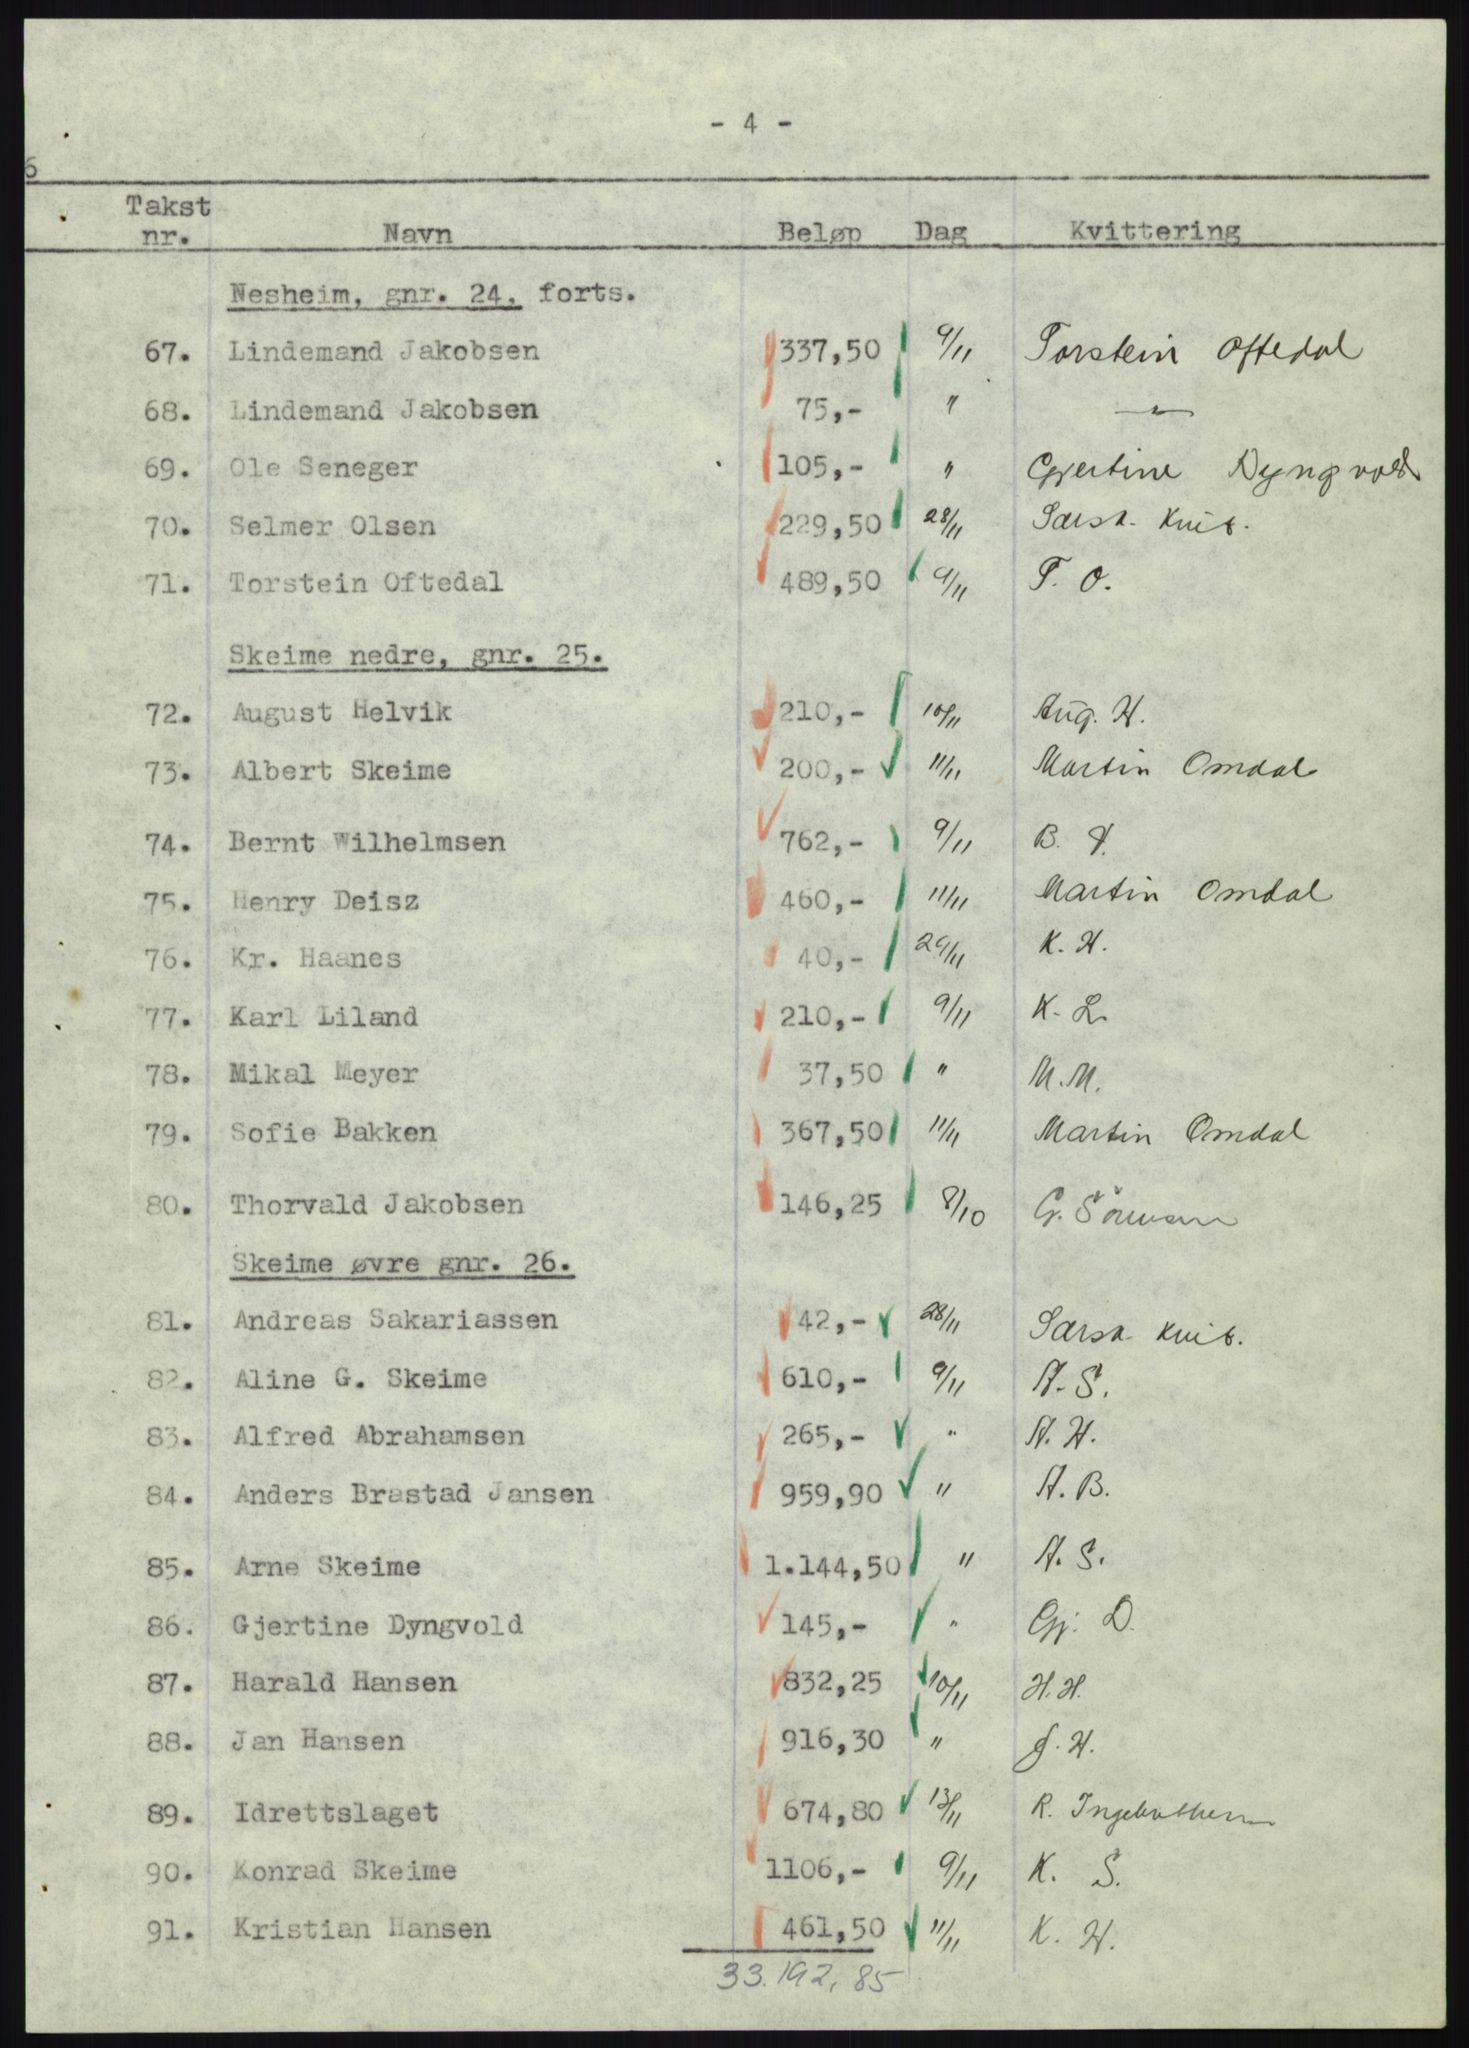 - 4 -
6
Takst nr. Navn Beløp Dag Kvittering
Nesheim, gnr. 24, forts.
67. Lindemand Jakobsen 337,50 9/11 Torstein Oftedal
68. Lindemand Jakobsen 75,- " —"—
69. Ole Seneger 105,- " Gjertine Dyngvold
70. Selmer Olsen 229,50 28/11 Særsk. kvit.
71. Torstein Oftedal 489,50 9/11 T. O.
Skeime nedre, gnr. 25.
72. August Helvik 210,- 10/11 Aug. H.
73. Albert Skeime 200,- 11/11 Martin Omdal
74. Bernt Wilhelmsen 762,- 9/11 B.
75. Henry Deisz 460,- 11/11 Martin Omdal
76. Kr. Haanes 40,- 29/11 K. H.
77. Karl Liland 210,- 9/11 K. L.
78. Mikal Meyer 37,50 " M.M.
79. Sofie Bakken 367,50 11/11 Martin Omdal
80. Thorvald Jakobsen 146,25 8/10 G.
Skeime øvre gnr. 26.
81. Andreas Sakariassen 42,- 28/11 Særsk. kvit.
82. Aline G. Skeime 610,- 9/11 A. S.
83. Alfred Abrahamsen 265,- " A. H.
84. Anders Brastad Jansen 959,90 " A. B.
85. Arne Skeime 1.144,50 " A. S.
86. Gjertine Dyngvold 145,- " Gj. D.
87. Harald Hansen 832,25 10/11 H. H.
88. Jan Hansen 916,30 " J. H.
89. Idrettslaget 674,80 13/11 R.
90. Konrad Skeime 1106,- 9/11 K. S.
91. Kristian Hansen 461,50 11/11 K. H.
33.192,85